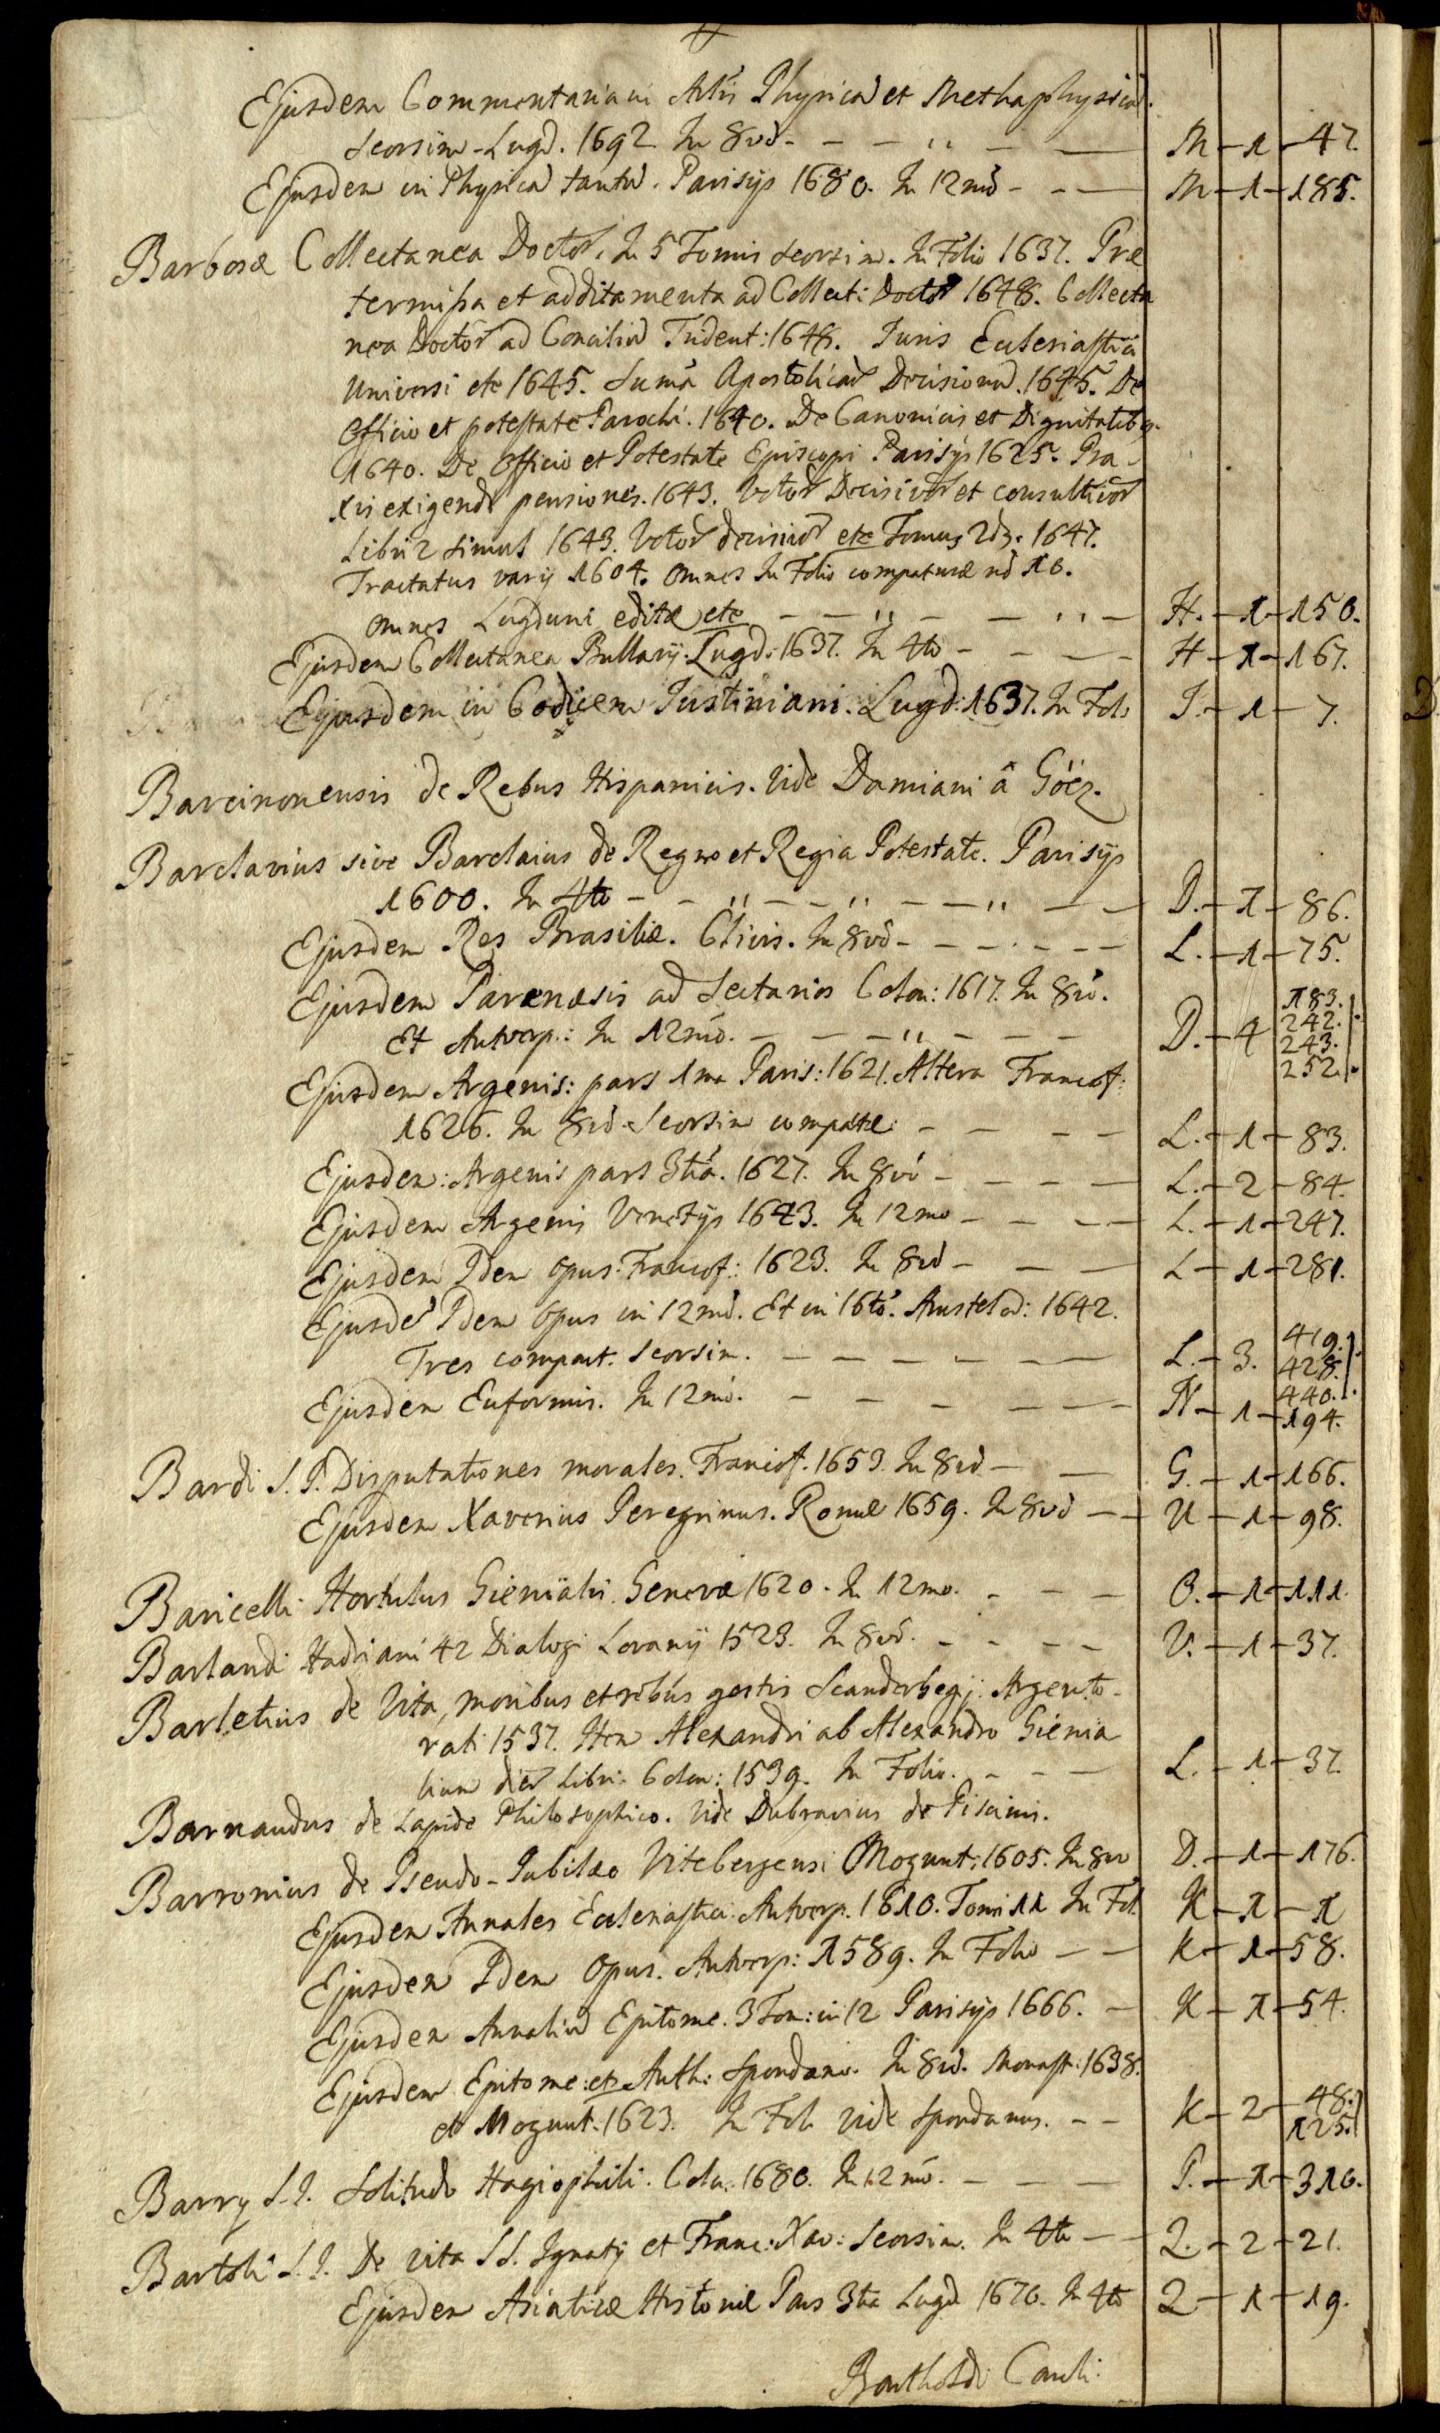 Ejusdem Commentaria in Artis Physicā et Methaphysicā.
seorsim. Lugd. 1692. In 8vō - - - " - — M - 1 - 47.
Ejusdem in Physicā tantū. Parisijs 1680. In 12mō - - — M - 1 - 185.
Barbosæ Collectanea Doctor. In 5 Tomis seorsim. In Folio 1637. Præ
termissa et additamenta ad Collect: Doctor 1648. Collecta
nea Doctor ad Conciliū Trident: 1648. Juris Eclesiastici
Universi etc 1645. Sumā Apostolicar Decisionū. 1645. De
Officio et potestate Parochi. 1640. De Canonicis et Dignitatibq.
1640. De Officio et Potestate Episcopi Parisijs 1625. Pra-
xis exigendi pensiones. 1643. Votor Decisivor et consultivor
Libri 2 simul 1643. Votor decisivor etc Tomus 2dq. 1647.
Tractatus varij 1604. omnes In Folio compacturæ nō 10.
omnes Lugduni editæ etc — — " — — " — H. - 1 - 150.
Ejusdem Collectanea Bullarij. Lugd: 1637. In 4to - - — — H - 1 - 167.
Ejusdem in Codicem Justiniani. Lugd: 1637. In Fol: J. - 1 - 7.
Barcinonensis de Rebus Hispanicis. Vide Damiani â Göez.
Barclavius sive Barclaius de Regno et Regia Potestate. Parisijs
1600. In 4to - - " - - " - - " — D. - 1 - 86.
Ejusdem Res Brasiliæ. Clivis. In 8vō - - - - - - L. - 1 - 75.
Ejusdem Parænesis ad Sectarios Colon: 1617. In 8vō. 183.
Et Antverp.: In 12mō. — — — " — — — D. - 4 242.
243.
252.
Ejusdem Argenis: pars 1ma Paris: 1621. Altera Francof:
1626. In 8vō seorsim compactæ. — — — — L. - 1 - 83.
Ejusdem: Argenis pars 3tia. 1627. In 8vō - - - — L. - 2 - 84.
Ejusdem Argenis Venetijs 1643. In 12mo - - - - L. - 1 - 247.
Ejusdem Idem opus. Francof: 1623. In 8vō - — — L - 1 - 281.
Ejusdē Idem opus in 12mō. Et in 16tō. Amstelod: 1642.
Tres compact. seorsim. — — — - — — L. - 3. 419.
428.
440.
Ejusdem Euformis. In 12mō. — — - — — N - 1 - 194.
Bardi S. J. Disputationes morales. Francof. 1653. In 8vō — — G. - 1 - 166.
Ejusdem Xaverius Peregrinus. Romæ 1659. In 8vō — — U - 1 - 98.
Baricelli Hortulus Gienialis. Genevæ 1620. In 12mo. - — — O. - 1 - 111.
Barlandi Hadriani 42 Dialogi Lovanij 1523. In 8vō. - - - - V. - 1 - 37.
Barletius de Vita, moribus et rebus gestis Scanderbegj. Argento-
rati 1537. Item Alexandri ab Alexandro Gienia
lium dier Libri. Colon: 1539. In Folio. - - — L. - 1 - 37.
Barnaudus de Lapide Philosophico. Vide Dubravius de Piscinis.
Barronius de Pseudo-Jubilæo Vitebergensi Mogunt: 1605. In 8vo D. - 1 - 176.
Ejusdem Annales Eclesiastici. Antverp. 1610. Tomi 11 In Fol K - 1 - 1
Ejusdem Idem Opus. Antverp: 1589. In Folio — — K - 1 - 58.
Ejusdem Annaliū Epitome. 3 Tom: in 12 Parisijs 1666. — K - 1 - 54.
Ejusdem Epitome: et Auth: Spondano. In 8vō. Monast: 1638.
et Mogunt. 1623. In Fol. vide Spondanus. - - K - 2 - 48.
125.
Barry S. J. Solitudo Hagiophili. Colon. 1680. In 12mō. — — — P. - 1 - 310.
Bartoli S. J. De vita SS. Ignatij et Franc: Xav: seorsim. In 4to — — Q. - 2 - 21.
Ejusdem Asiaticæ Historiæ Pars 3tia Lugd. 1670. In 4to Q - 1 - 19.
Bartholdi Caroli.